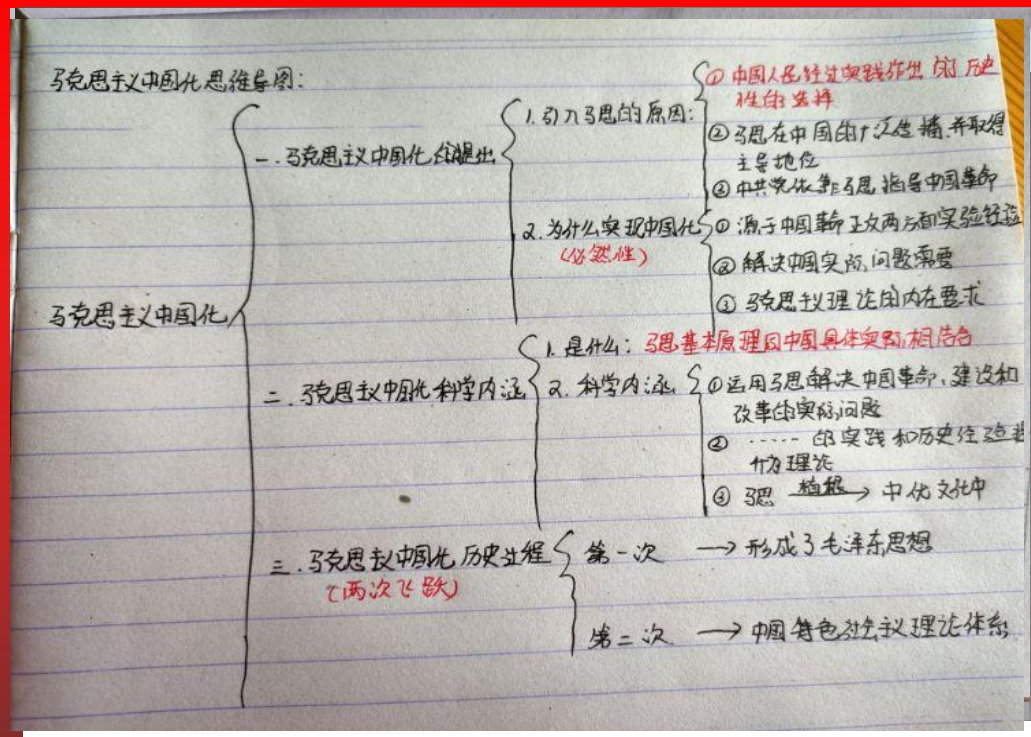 马克思主义中国化思维导图:
一.马克思主义中国化的提出
1.引入马思的原因:
①中国人民经过实践作出的历史
性的选择
②马思在中国的广泛传播,并取得
主导地位
③中共党依靠马思指导中国革命
2.为什么实现中国化
(必然性)
①源于中国革命正反两方面实验经验
②解决中国实际问题需要
③马克思主义理论的内在要求
马克思主义中国化
二.马克思主义中国化科学内涵
1.是什么:马思基本原理同中国具体实际相结合
2.科学内涵
①运用马思解决中国革命、建设和
改革的实际问题
②……的实践和历史经验
升为理论
③马思 植根→ 中优文化中
三.马克思主义中国化历史过程
(两次飞跃)
第一次 → 形成了毛泽东思想
第二次 → 中国特色社会主义理论体系